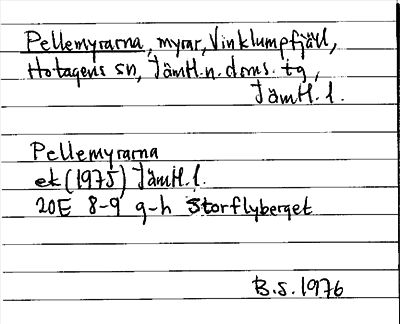 Pellemyrarna, myrar, Vinklumpfjäll,
Hotagens sn, Jämtl.n. doms. tg,
Jämtl. l.
Pellemyrarna
ek (1975) Jämtl. l.
20E 8-9 g-h Storflyberget
B.S. 1976